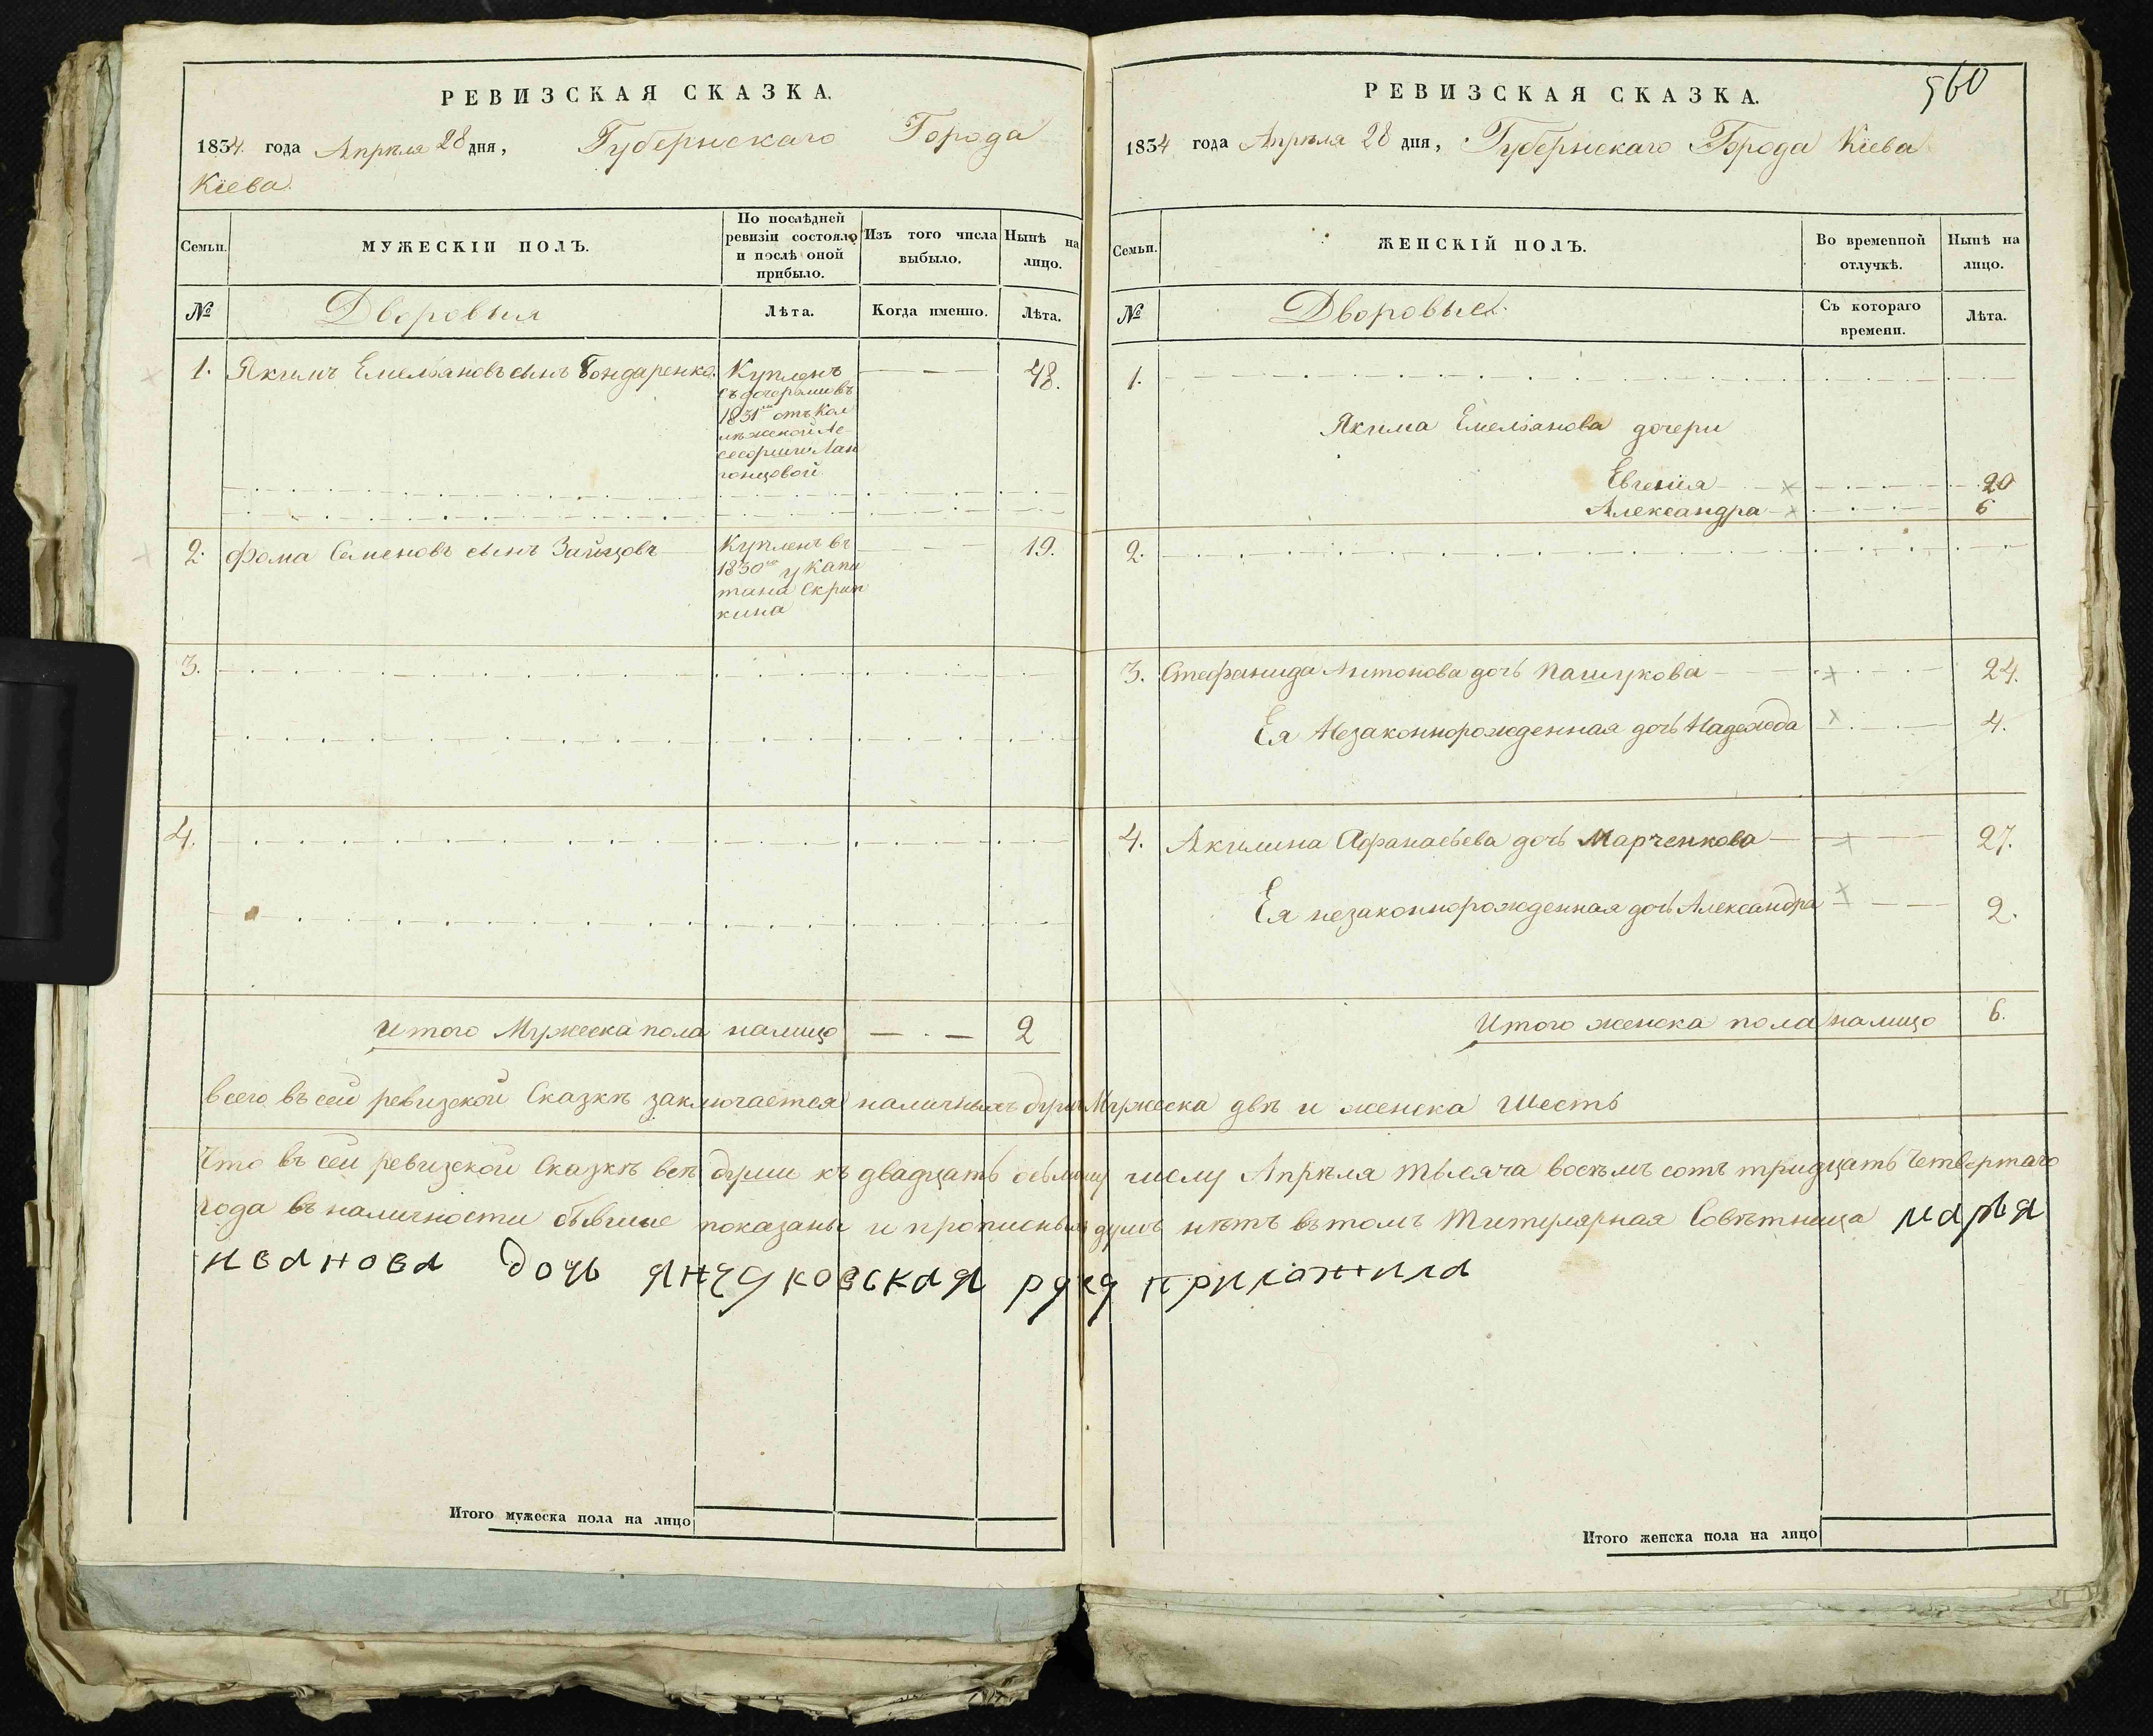 РЕВИЗСКАЯ СКАЗКА.
1834. года Апрѣля 28 дня, Губернскаго Города
Кіева.
Семьи.
МУЖЕСКІЙ ПОЛЪ.
По послѣдней
ревизіи состояло
и послѣ оной
прибыло.
Изъ того числа
выбыло.
Нынѣ на
лицо.
№
Дворовыя
Лѣта.
Когда именно.
Лѣта.
1. Якимъ Емельяновъ сынъ Бондаренко. Купленъ — — — 48.
съ дочерьми въ
1831 отъ Кол
лѣжской Ас
сесорши
2. Фома Семеновъ сынъ Зайцовъ Купленъ въ — — — 19.
1830 у Капи
тана Скрип
кина
3.
4.
Итого Мужеска пола налицо — . — 2
РЕВИЗСКАЯ СКАЗКА.
560
1834 года Апрѣля 28 дня, Губернскаго Города Кіева
Семьи.
ЖЕНСКІЙ ПОЛЪ.
Во временной
отлучкѣ.
Нынѣ на
лицо.
№
Дворовыя.
Съ котораго
времени.
Лѣта.
1.
Якима Емельянова дочери
Евгенія 20
Александра 6
2.
3. Стефанида Антонова дочь Пашукова 24.
Ея Незаконнорожденная дочь Надежда 4.
4. Акилина Афанасьева дочь Марченкова 27.
Ея незаконнорожденная дочь Александра 2.
Итого женска пола налицо 6.
всего въ сей ревизской Сказкѣ заключается наличныхъ душъ Мужеска двѣ и женска Шесть
Что въ сей ревизской Сказкѣ всѣ души къ двадцать осьмому числу Апрѣля тысяча восемъ сотъ тридцать Четвертаго
года въ наличности бывшые показаны и прописныхъ душъ нѣтъ въ томъ Титулярная Совѣтница марья
иванова дочь янчуковская руку приложила
Итого мужеска пола на лицо
Итого женска пола на лицо